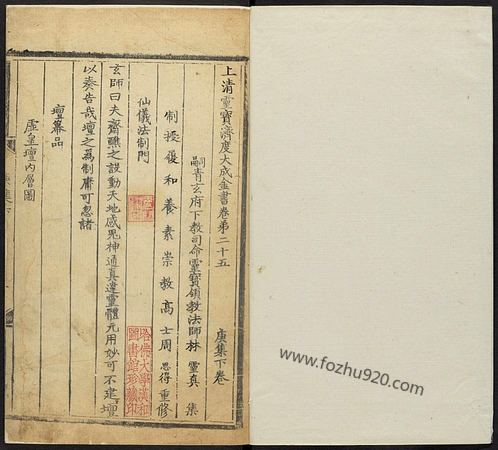 上清靈寶濟度大成金書卷第二十五
庚集下卷
嗣青玄府下教司命靈寶領教法師林 靈真 集
制授履和養素崇教高士周 思得 重修
仙儀法制門
玄師曰夫齋醮之設動天地感鬼神通真達靈體元用妙可不建壇
以奏告哉壇之為制庸可忽諸
壇幕品
虛皇壇內層圖
哈佛大學漢和
圖書館珍藏印
www.fozhu920.com